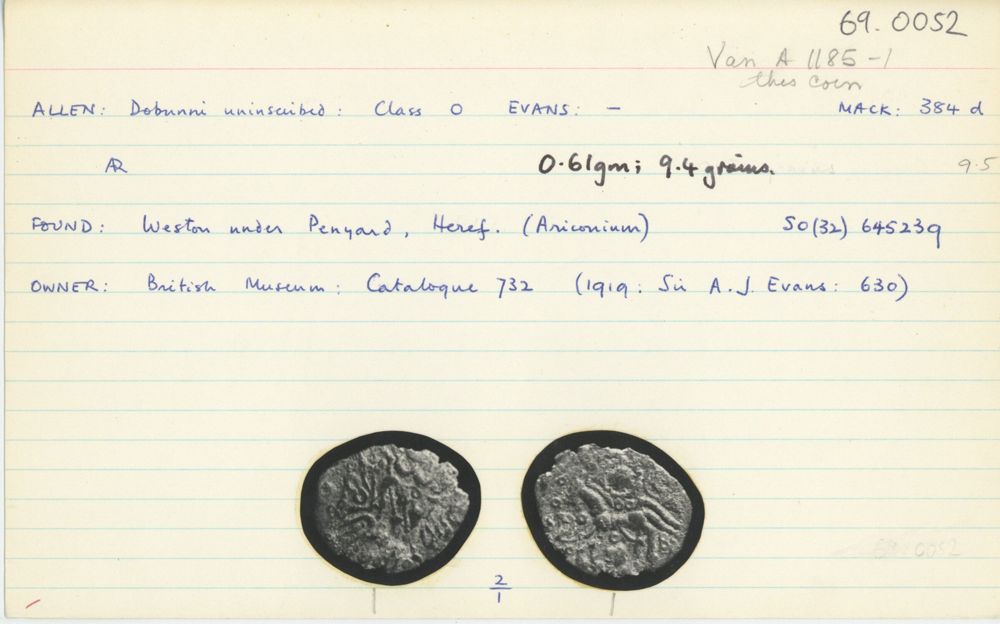 69.0052
Van A 1185-1
this coin
ALLEN: Dobunni uninscribed: Class O EVANS: — MACK: 384 d
AR 0.61gm; 9.4 grains. 9.5
FOUND: Weston under Penyard, Heref. (Ariconium) SO(32) 645239
OWNER: British Museum: Catalogue 732 (1919: Sir A.J. Evans: 630)
69.0052
2
1